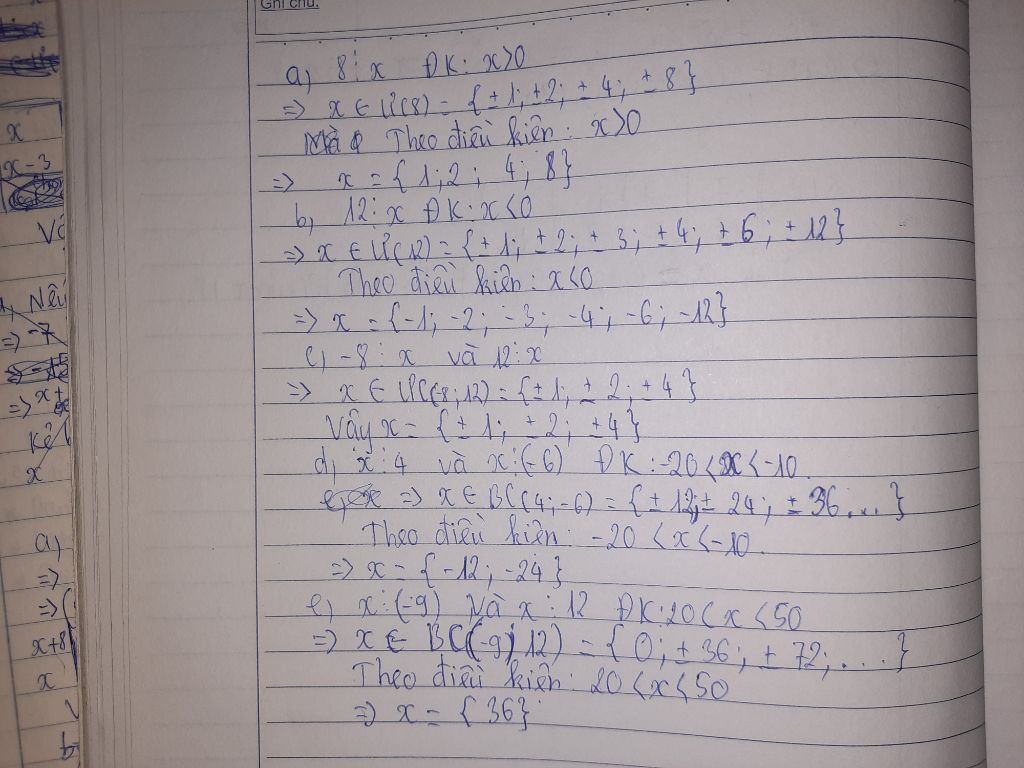 Ghi chú:
a, 8 ⋮ x ĐK: x>0
=> x ∈ Ư(8) = { ±1; ±2; ±4; ±8}
Theo điều kiện: x>0
=> x = { 1; 2; 4; 8}
b, 12 ⋮ x ĐK: x<0
=> x ∈ Ư(12) = { ±1; ±2; ±3; ±4; ±6; ±12}
Theo điều kiện: x<0
=> x = {-1; -2; -3; -4; -6; -12}
c, -8 ⋮ x và 12 ⋮ x
=> x ∈ ƯC(-8; 12) = {±1; ±2; ±4}
Vậy x = { ±1; ±2; ±4}
d, x ⋮ 4 và x ⋮ (-6) ĐK: -20 < x < -10
=> x ∈ BC(4; -6) = { ±12; ± 24; ±36...}
Theo điều kiện: -20 < x < -10.
=> x = { -12; -24}
e, x ⋮ (-9) và x ⋮ 12 ĐK: 20 < x < 50
=> x ∈ BC(-9; 12) = { 0; ±36; ±72; ...}
Theo điều kiện: 20 < x < 50
=> x = { 36}
x
x-3
Nếu
=> -7
x
a,
=>
x+8
x